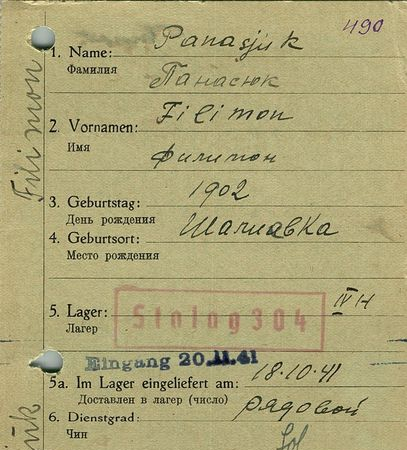 490
1. Name: Panasjuk
Фамилия Панасюк
2. Vornamen: Filimon
Имя Филимон
3. Geburtstag: 1902
День рождения
4. Geburtsort: Шалиавка
Место рождения
5. Lager: Stalag 304 IV H
Лагер
Eingang 20.11.41
5a. Im Lager eingeliefert am: 18.10.41
Доставлен в лагер (число)
6. Dienstgrad: рядовой
Чин
Sol
Filimon